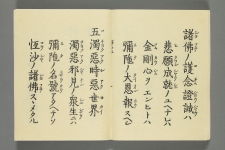 諸佛ノ護念證誠ハ
悲願成就ノユヘナレハ
金剛心ヲエンヒトハ
彌陀ノ大恩報スヘシ
五濁惡時惡世界
濁惡邪見ノ衆生ニハ
彌陀ノ名號アタヘテソ
恒沙ノ諸佛スヽメタル